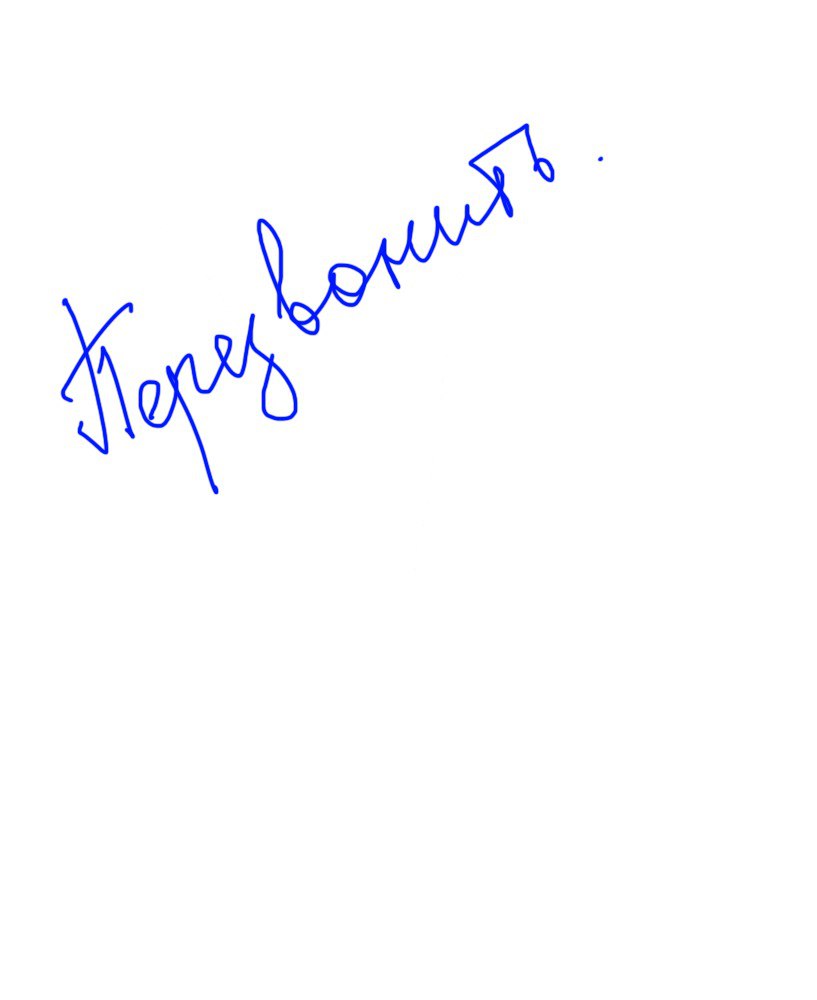 Перезвонить.